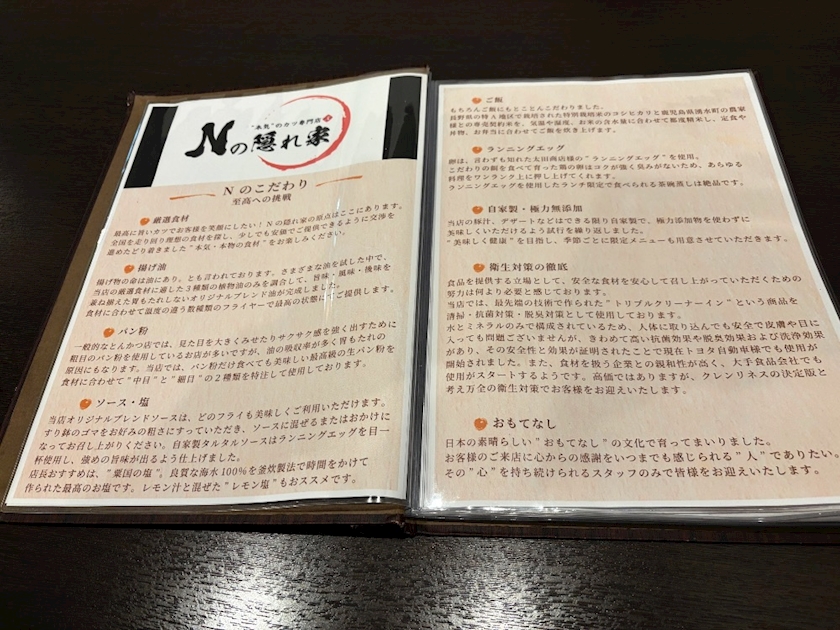 "本気"のカツ専門店
Nの隠れ家
N のこだわり
至高への挑戦
厳選食材
最高に旨いカツでお客様を笑顔にしたい！Nの隠れ家の原点はここにあります。
全国を走り回り理想の食材を探し、少しでも安価でご提供できるように交渉を
進めたどり着きました"本気・本物の食材"をお楽しみください。
揚げ油
揚げ物の命は油にあり、とも言われております。さまざまな油を試した中で、
当店の厳選食材に適した３種類の植物油のみを調合して、旨味・風味・後味を
兼ね揃えた胃もたれしないオリジナルブレンド油が完成しました。
食材に合わせて温度の違う数種類のフライヤーで最高の状態にてご提供します。
パン粉
一般的なとんかつ店では、見た目を大きくみせたりサクサク感を強く出すために
粗目のパン粉を使用しているお店が多いですが、油の吸収率が多く胃もたれの
原因にもなります。当店では、パン粉だけ食べても美味しい最高級の生パン粉を
食材に合わせて"中目"と"細目"の２種類を特注して使用しております。
ソース・塩
当店オリジナルブレンドソースは、どのフライも美味しくご利用いただけます。
すり鉢のゴマをお好みの粗さにすっていただき、ソースに混ぜるまたはおかけに
なってお召し上がりください。自家製タルタルソースはランニングエッグを目一
杯使用し、強めの旨味が出るよう仕上げました。
店長おすすめは、"粟国の塩"。良質な海水100％を釜炊製法で時間をかけて
作られた最高のお塩です。レモン汁と混ぜた"レモン塩"もおススメです。
ご飯
もちろんご飯にもとことんこだわりました。
長野県の特A地区で栽培された特別栽培米のコシヒカリと鹿児島県湧水町の農家
様との専売契約米を、気温や湿度、お米の含水量に合わせて都度精米し、定食や
丼物、お弁当に合わせてご飯を炊き上げます。
ランニングエッグ
卵は、言わずも知れた太田商店様の"ランニングエッグ"を使用。
こだわりの飼を食べて育った鶏の卵はコクが強く臭みがないため、あらゆる
料理をワンランク上に押し上げてくれます。
ランニングエッグを使用したランチ限定で食べられる茶碗蒸しは絶品です。
自家製・極力無添加
当店の豚汁、デザートなどはできる限り自家製で、極力添加物を使わずに
美味しくいただけるよう試行を繰り返しました。
"美味しく健康"を目指し、季節ごとに限定メニューも用意させていただきます。
衛生対策の徹底
食品を提供する立場として、安全な食材を安心して召し上がっていただくための
努力は何より必要と感じております。
当店では、最先端の技術で作られた"トリプルクリーナーイン"という商品を
清掃・抗菌対策・脱臭対策として使用しております。
水とミネラルのみで構成されているため、人体に取り込んでも安全で皮膚や目に
入っても問題ございませんが、きわめて高い抗菌効果や脱臭効果および洗浄効果
があり、その安全性と効果が証明されたことで現在トヨタ自動車様でも使用が
開始されました。また、食材を扱う企業との親和性が高く、大手食品会社でも
使用がスタートするようです。高価ではありますが、クレンリネスの決定版と
考え万全の衛生対策でお客様をお迎えいたします。
おもてなし
日本の素晴らしい"おもてなし"の文化で育ってまいりました。
お客様のご来店に心からの感謝をいつまでも感じられる"人"でありたい。
その"心"を持ち続けられるスタッフのみで皆様をお迎えいたします。